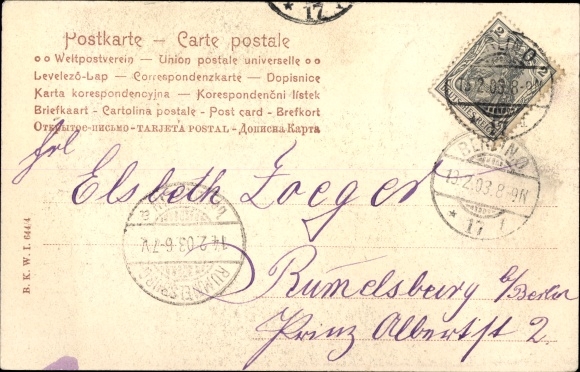 17
Postkarte — Carte postale
Weltpostverein — Union postale universelle
Levelező-Lap — Correspondenzkarte — Dopisnice
Karta korespondencyjna — Korespondenční lístek
Briefkaart - Cartolina postale - Post card - Brefkort
Открытое-письмо - TARJETA POSTAL - Дописна Карта
13.2.03.8-9N
17
BERLIN.O
13.2.03.8-9N
* 17 f
Frl. Elsbeth Zoeger
14.2.03.6-7V
RUMMELSBURG
Rumelsburg b/Berlin
Prinz Albertst 2
B. K. W. I. 644/4